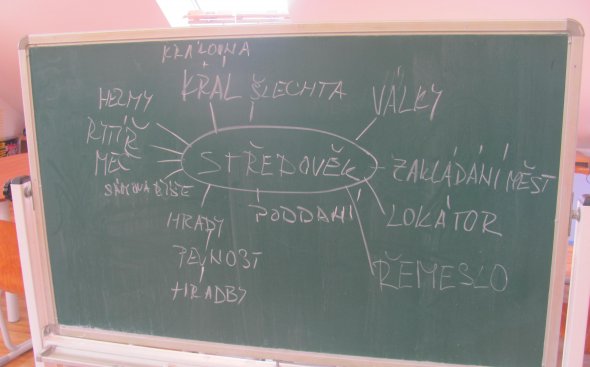 KRÁLOVNA
KRÁL ŠLECHTA
VÁLKY
HELMY
RYTÍŘ
MEČ
STŘEDOVĚK
ZAKLÁDÁNÍ MĚST
LOKÁTOR
ŘEMESLO
PODDANÍ
HRADY
PEVNOST
HRADBY